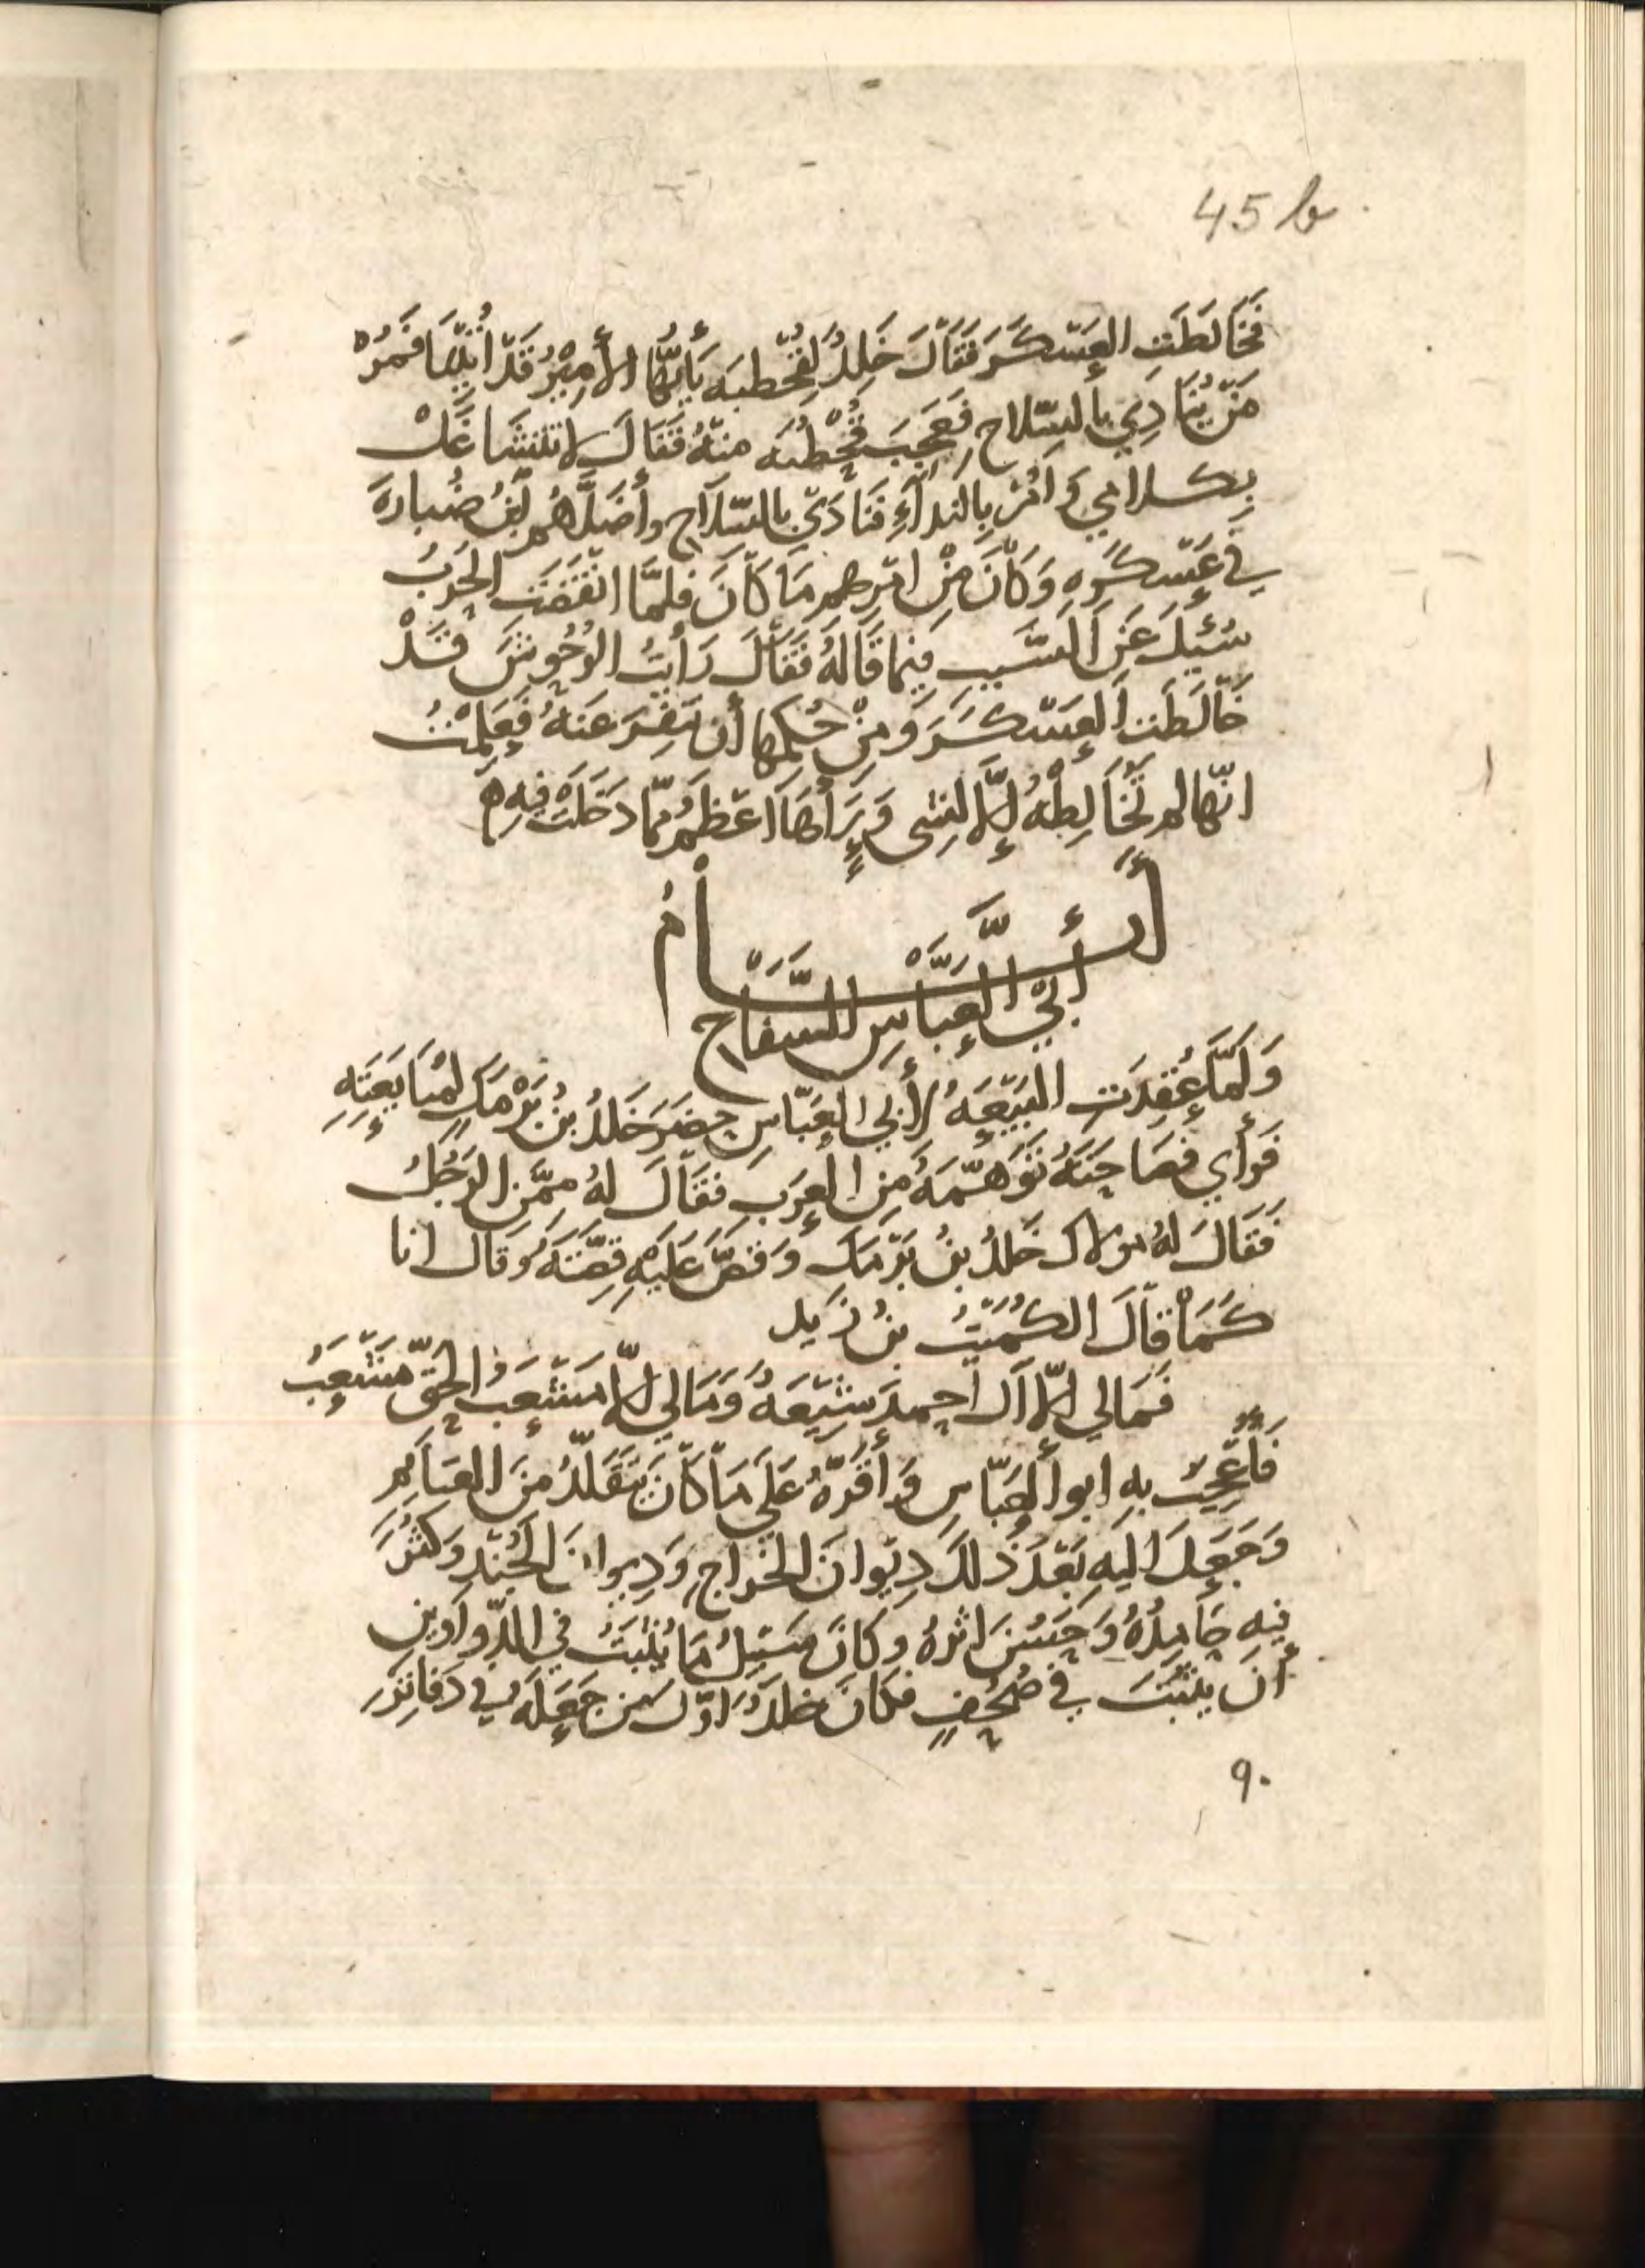 45 b
فَخَالَطَتِ العَسْكَرَ فَقَالَ خَلِدٌ لِقُحْطبَه يَأَيُّهَا الأَمِيْرُ قَدْ أُتِيْهَا فَمُرْ
مَنْ يُنَادِي بالسِّلاحِ فَعَجِبَ قُحْطُبَه مِنْهُ فَقَالَ لا تَتَشَاغَلْ
بِكَلامِي وَأْمُرْ بِالنِدَآءِ فَنَادَيْ بالسِّلَاحِ وأَضَلَّهُم ابْنُ ضُبارَة
في عَسْكَرِه وَكَانَ مِنْ امْرِهِم مَا كَانَ فلمَّا انْقَضَتِ الحَرْبُ
سُئِيلَ عَنِ السَّبَبِ فِيما قَالَهُ فَقَالَ رَأَيْتُ الوُحُوشَ قَدْ
خَالَطَتِ العَسْكَرَ وَمِنْ حُكمِهَا أن تَفِرَ عَنهُ فَعَلِمْتُ
انّها لم تُخَالِطْهُ إلَّا لِشيٍ وَرَأَهَا اعْظَمُ مِمّا دَخَلَتْ فِيهِ ه
أيَّــــــــامُ
أَبِي العَبَّاسِ السَّفَاحِ
وَلَمَّا عُقِدَتِ البَيْعَه لأَبِي العَبّاسِ حَضَرَ خَلدُ بنُ بَرْمَك لمُبَايَعَتِهِ
فَرَأى فَصَاحَتَهُ تَوَهّمَهُ مِن العَرَبِ فَقَالَ لهُ مِمَّن الرَجُلُ
فَقَالَ لهُ مولاك خَلدُ بنُ بَرْمَك وَقَصَّ عَلَيْهِ قِصَّتَهُ وَقَال انا
كَمَا قَالَ الكُمَيْتُ بنُ زَيد
فَمَالي إلّا آلَ احمِدَ شِيْعَةٌ وَمَالي إلّا مَشْعَبَ الحَقِّ مَشْعَبُ
فَأُعْجِبَ بهِ ابو العَبّاسِ وَأَقَرَّهُ عَلَي مَا كَانَ يَتَقَلَّدُ مِنَ الغنَايم
وَجَعَلَ اليهِ بَعْدَ ذلكَ دِيْوانَ الخراجِ وَدِيوانَ الجُنْدِ وَكَثُرَ
فِيهِ حَامِدُهُ وَحَسُنَ اثرهُ وكانَ سَبِيلُ مَا يُثْبَتُ في الدّواوينِ
أن يثْبُتَ في صُحُفٍ فكانَ خلدُ اوّل من جَعَلَه في دَفاتِرَ
٩٠